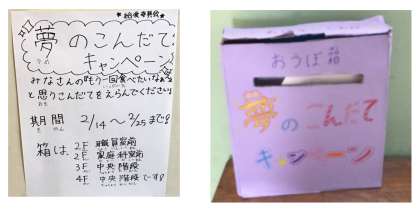 給食委員会
夢のこんだて
ゆめ
キャンペーン
みなさんの『もう一回食べたいなぁ』
と思うこんだてをえらんでください
期間 2/14〜2/25まで!!
きかん
箱は、2F 職員室前
2F 家庭科室前
3F 中央階段
4F 中央階段です!
おうぼ箱
夢のこんだて
キャンペーン